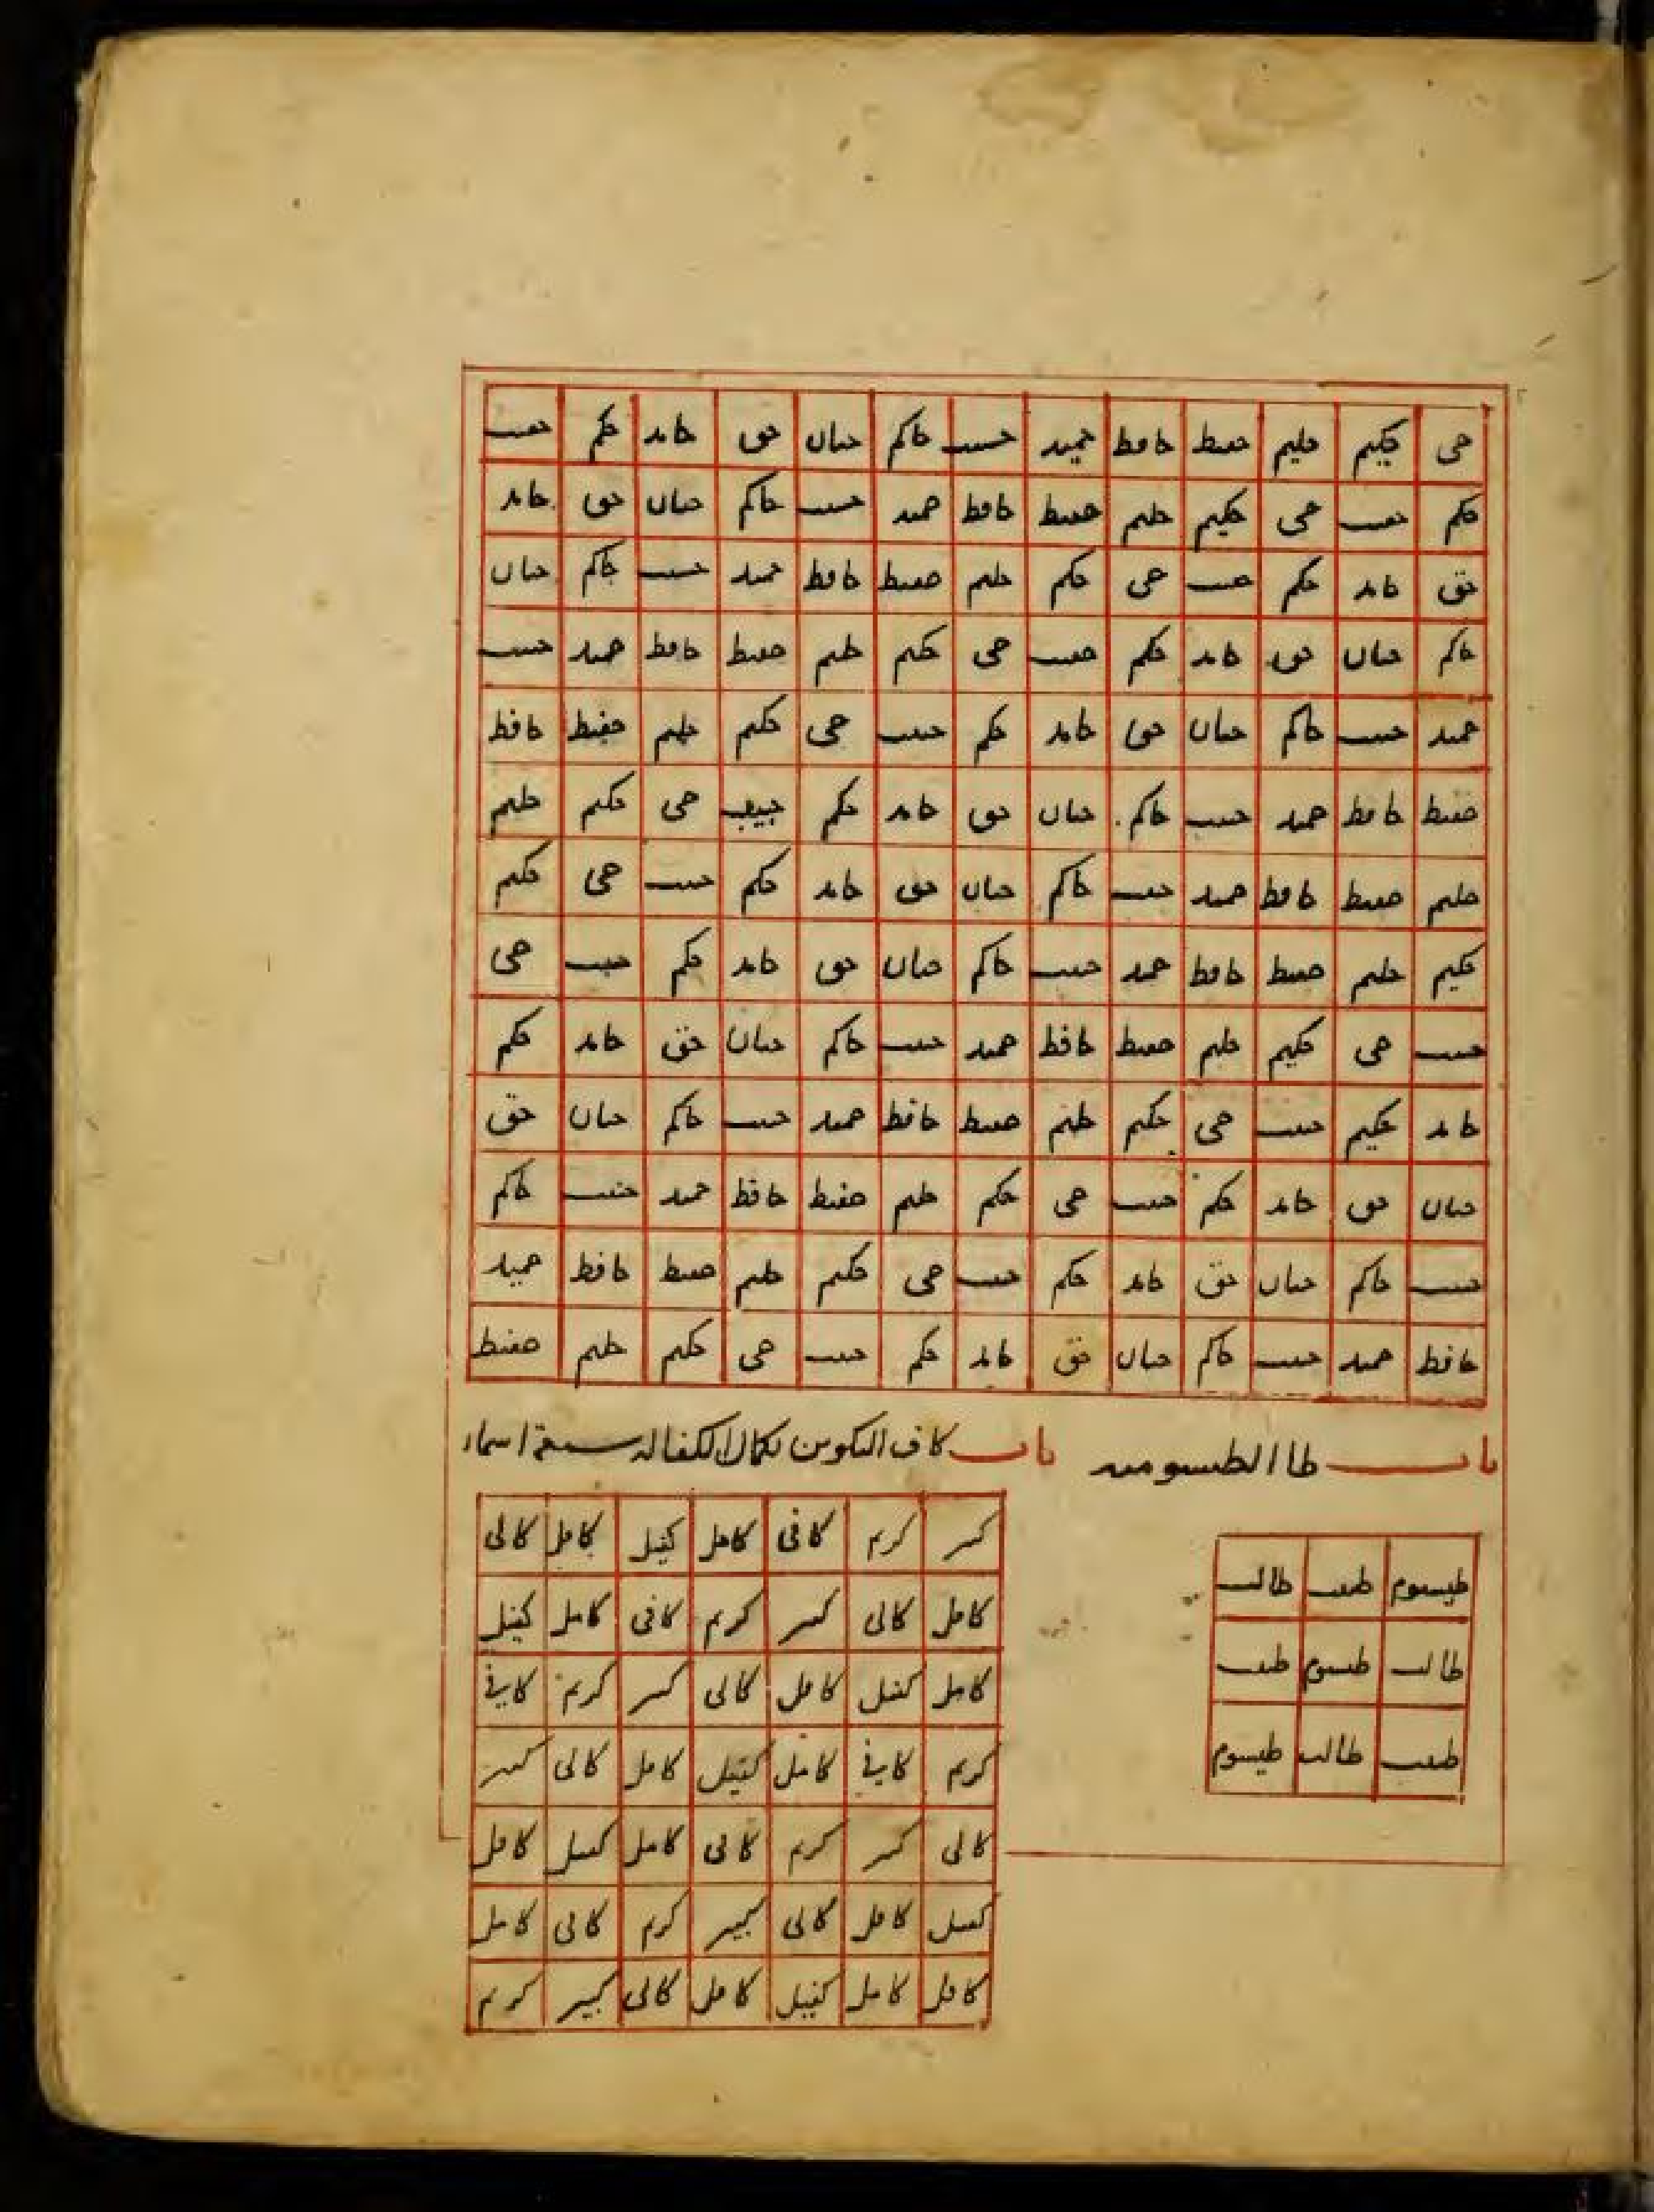 حى حكيم حليم حفيظ حافظ حميد حسيب حاكم حنان حق حامد حكم حبيب
حكم حبيب حى حكيم حليم حفيظ حافظ حميد حسيب حاكم حنان حق حامد
حق حامد حكم حبيب حى حكيم حليم حفيظ حافظ حميد حسيب حاكم حنان
حاكم حنان حق حامد حكم حبيب حى حكيم حليم حفيظ حافظ حميد حسيب
حميد حسيب حاكم حنان حق حامد حكم حبيب حى حكيم حليم حفيظ حافظ
حفيظ حافظ حميد حسيب حاكم حنان حق حامد حكم حبيب حى حكيم حليم
حليم حفيظ حافظ حميد حسيب حاكم حنان حق حامد حكم حبيب حى حكيم
حكيم حليم حفيظ حافظ حميد حسيب حاكم حنان حق حامد حكم حبيب حى
حبيب حى حكيم حليم حفيظ حافظ حميد حسيب حاكم حنان حق حامد حكم
حامد حكيم حبيب حى حكيم حليم حفيظ حافظ حميد حسيب حاكم حنان حق
حنان حق حامد حكم حبيب حى حكيم حليم حفيظ حافظ حميد حسيب حاكم
حسيب حاكم حنان حق حامد حكم حبيب حى حكيم حليم حفيظ حافظ حميد
حافظ حميد حسيب حاكم حنان حق حامد حكم حبيب حى حكيم حليم حفيظ
باب طا الطيسومية
طيسوم طبيب طالب
طالب طيسوم طبيب
طبيب طالب طيسوم
باب كاف التكوين لكمال الكفاله سبعة اسماء
كبير كريم كافى كامل كفيل كامل كالى
كامل كالى كبير كريم كافى كامل كفيل
كامل كفيل كامل كالى كبير كريم كافى
كريم كافى كامل كفيل كامل كالى كبير
كالى كبير كريم كافى كامل كفيل كامل
كفيل كامل كالى كبير كريم كافى كامل
كامل كفيل كامل كالى كبير كريم